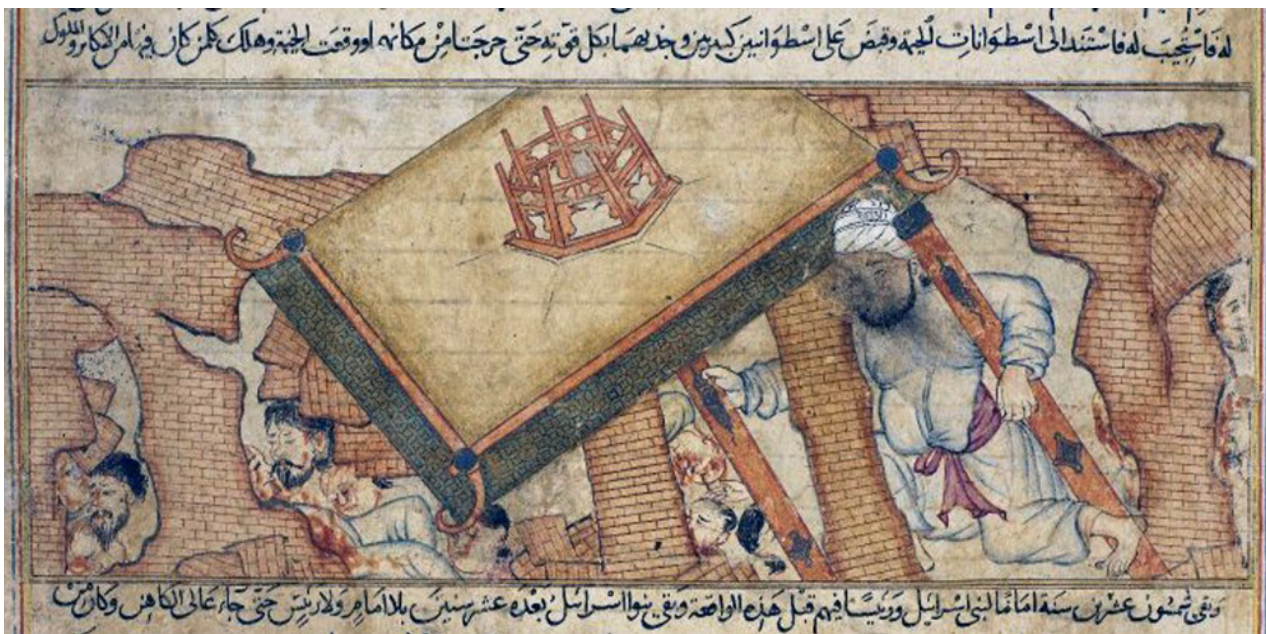 له فاستجيب له فاستند الى اسطوانات الخيمة وقبض على اسطوانتين كبيرتين وجذبهما بكل قوته حتى خرجتا من مكانهما ووقعت الخيمة وهلك كل من كان فيها من الاكابر والملوك
وبقى شمسون عشرين سنة اماما لبنى اسرائيل ورئيسا فيهم قبل هذه الواقعة وبقى بنوا اسرائيل بعده عشر سنين بلا امام ولا رئيس حتى جاء عالى الكاهن وكان من